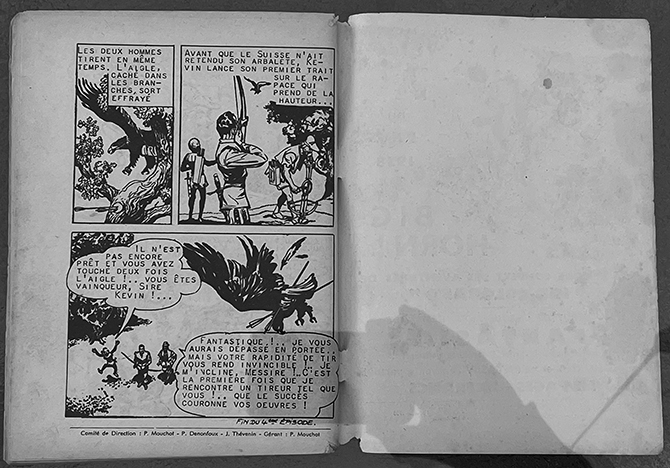 LES DEUX HOMMES
TIRENT EN MÊME
TEMPS. L'AIGLE,
CACHÉ DANS
LES BRAN-
CHES, SORT
EFFRAYÉ
AVANT QUE LE SUISSE N'AIT
RETENDU SON ARBALÈTE, KE-
VIN LANCE SON PREMIER TRAIT
SUR LE RA-
PACE QUI
PREND DE LA
HAUTEUR...
IL N'EST
PAS ENCORE
PRÊT ET VOUS AVEZ
TOUCHÉ DEUX FOIS
L'AIGLE !.. VOUS ÊTES
VAINQUEUR, SIRE
KEVIN !...
FANTASTIQUE !.. JE VOUS
AURAIS DÉPASSÉ EN PORTÉE..
MAIS VOTRE RAPIDITÉ DE TIR
VOUS REND INVINCIBLE !.. JE
M'INCLINE, MESSIRE !..C'EST
LA PREMIÈRE FOIS QUE JE
RENCONTRE UN TIREUR TEL QUE
VOUS !.. QUE LE SUCCÈS
COURONNE VOS OEUVRES !
FIN DU 4ème ÉPISODE.
Comité de Direction : P. Mouchot - P. Denonfoux - J. Thévenin - Gérant : P. Mouchot